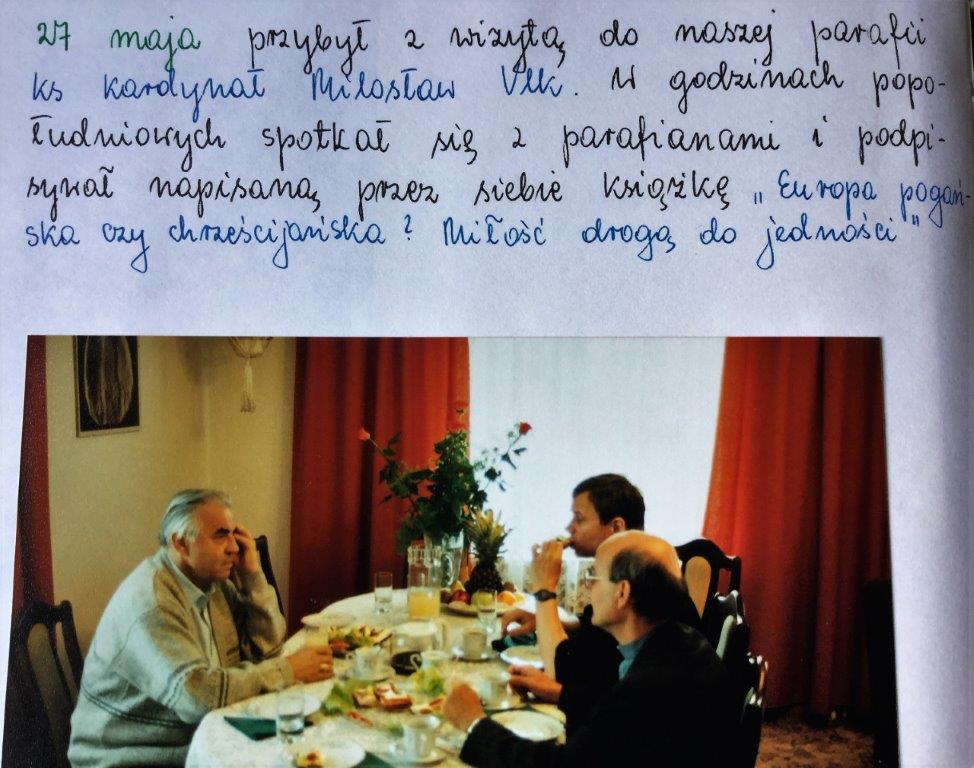 27 maja przybył z wizytą do naszej parafii
ks kardynał Milosław Vlk. W godzinach popo-
łudniowych spotkał się z parafianami i podpi-
sywał napisaną przez siebie książkę „Europa pogań-
ska czy chrześcijańska? Miłość drogą do jedności"